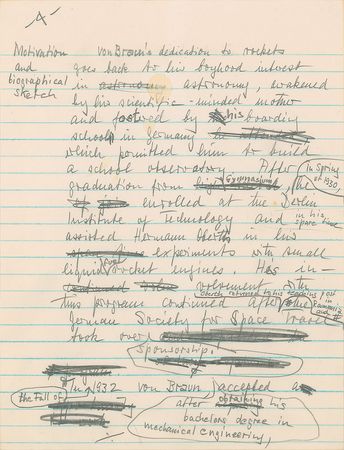 -A-
Motivation von Braun's dedication to rockets
and goes back to his boyhood interest
biographical in astronomy astronomy, wakened
sketch by his scientific-minded mother
and fostered by his boarding
school in Germany
which permitted him to build
a school observatory. After in Spring
graduation from Gymnasium, he of 1930,
enrolled at the Berlin
Institute of Technology and in his
spare time
assisted Hermann Oberth in his
experiments with small
liquid fuel rocket engines. His in-
volvement with
Oberth returned to his teaching post in
this program continued after
German Society for Space Travel
took over
sponsorship.
the Fall of In 1932 von Braun, accepted a
after obtaining his
bachelors degree in
mechanical engineering,